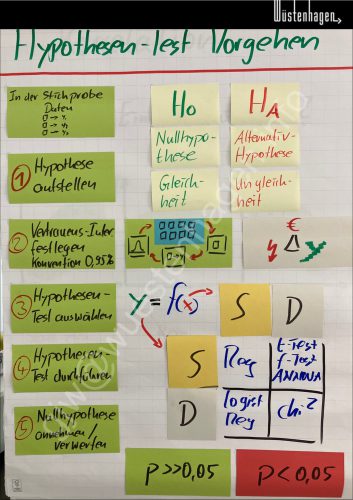 Wüstenhagen
Hypothesen-Test Vorgehen
In der Stichprobe
Daten
Ho
HA
Nullhypo-
these
Alternativ-
Hypothese
① Hypothese
aufstellen
Gleich-
heit
Ungleich-
heit
② Vertrauens-Inter
festlegen
Konvention 0,95%
€
③ Hypothesen-
Test auswählen
y = f(x)
S
D
④ Hypothesen-
Test durchführen
S
Reg
t-Test
f-Test
ANNOVA
⑤ Nullhypothese
annehmen/
verwerfen
D
logist
Reg
Chi²
p>>0,05
p<0,05